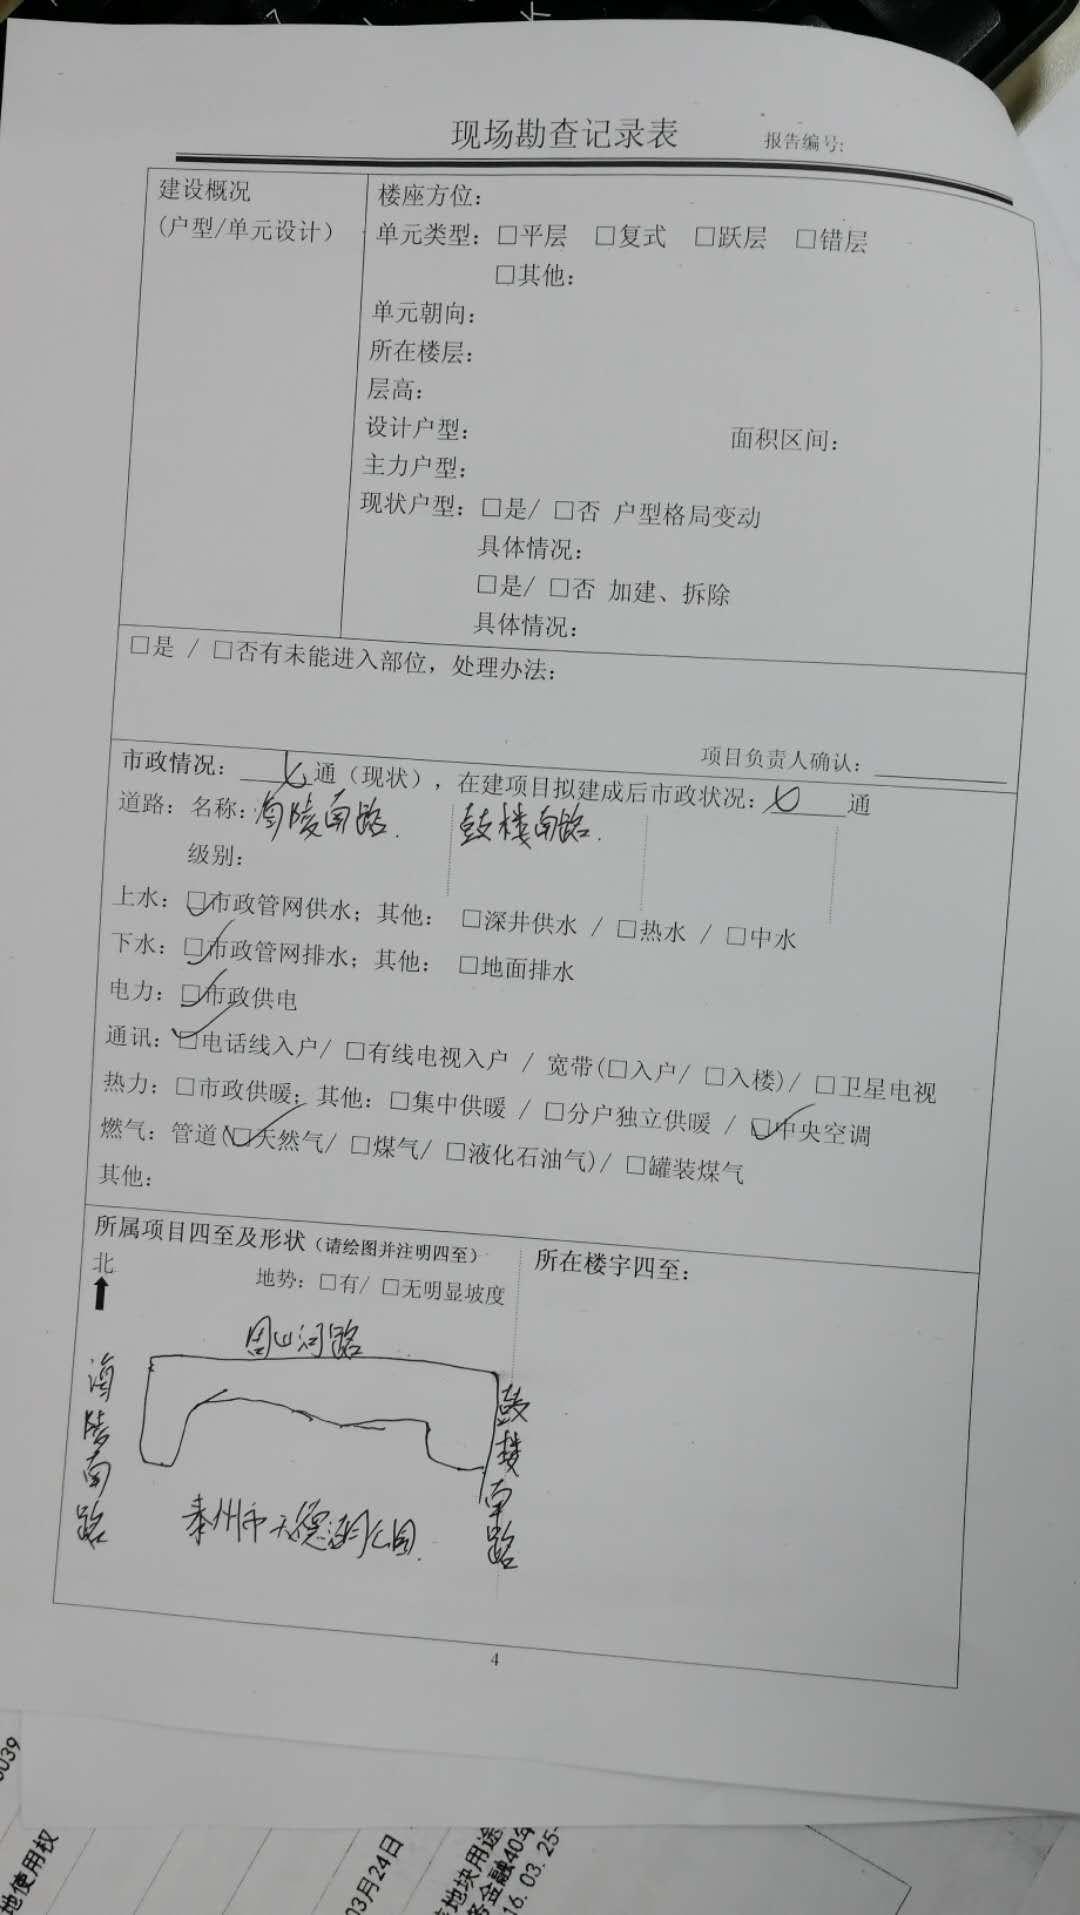 现场勘查记录表 报告编号:
建设概况
(户型/单元设计)
楼座方位:
单元类型: □平层 □复式 □跃层 □错层
□其他:
单元朝向:
所在楼层:
层高:
设计户型: 面积区间:
主力户型:
现状户型: □是/ □否 户型格局变动
具体情况:
□是/ □否 加建、拆除
具体情况:
□是 / □否有未能进入部位，处理办法:
项目负责人确认:
市政情况: 七 通（现状），在建项目拟建成后市政状况: 七 通
道路: 名称: 海陵南路. 鼓楼南路.
级别:
上水: ☑市政管网供水; 其他: □深井供水 / □热水 / □中水
下水: ☑市政管网排水; 其他: □地面排水
电力: ☑市政供电
通讯: ☑电话线入户/ □有线电视入户 / 宽带(□入户/ □入楼)/ □卫星电视
热力: □市政供暖; 其他: □集中供暖 / □分户独立供暖 / ☑中央空调
燃气: 管道(☑天然气/ □煤气/ □液化石油气)/ □罐装煤气
其他:
所属项目四至及形状（请绘图并注明四至）
北
地势: □有/ □无明显坡度
周山河路
海陵南路
鼓楼南路
泰州市天德湖公园.
所在楼宇四至:
4
0039
地使用权
03月24日
地块用途
务金融40年
16.03.25-